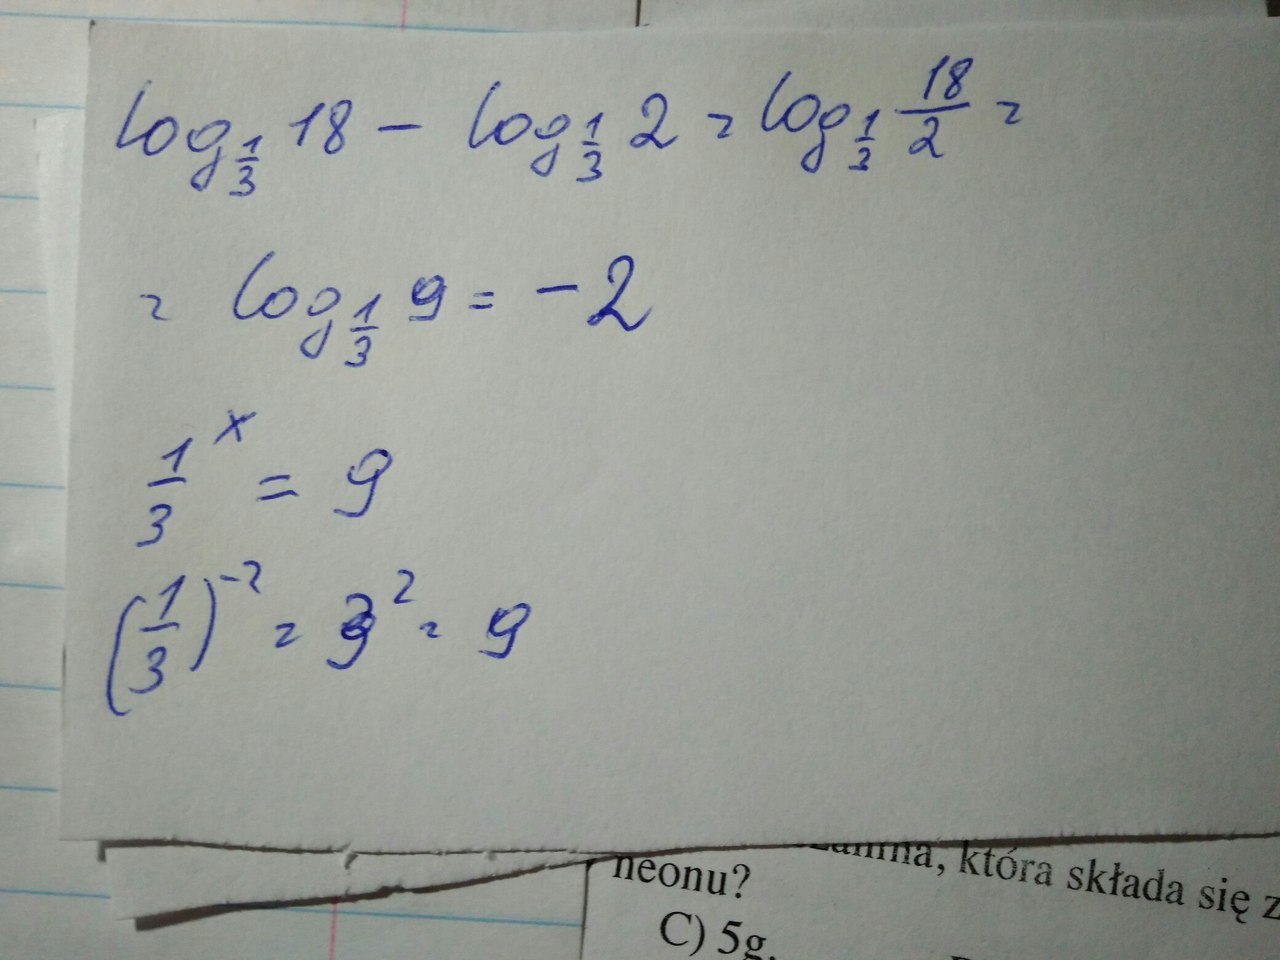 log₁⁄₃ 18 - log₁⁄₃ 2 = log₁⁄₃ 18/2 =
= log₁⁄₃ 9 = -2
1/3ˣ = 9
(1/3)⁻² = 3² = 9
która składa się z
neonu?
C) 5g.